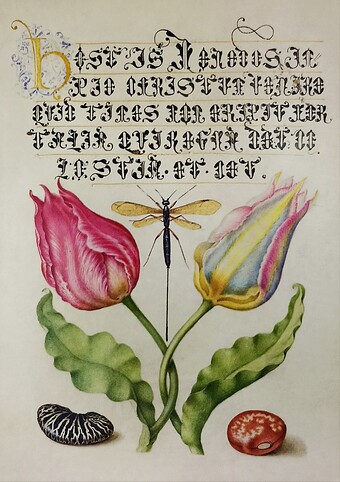 HOSTIS HERODES IM
PIE CHRISTVM VENIRE
QVID TIMES NON ERIPIT MOR
TALIA QVI REGNA DAT COE
LESTIA. ET. CET.